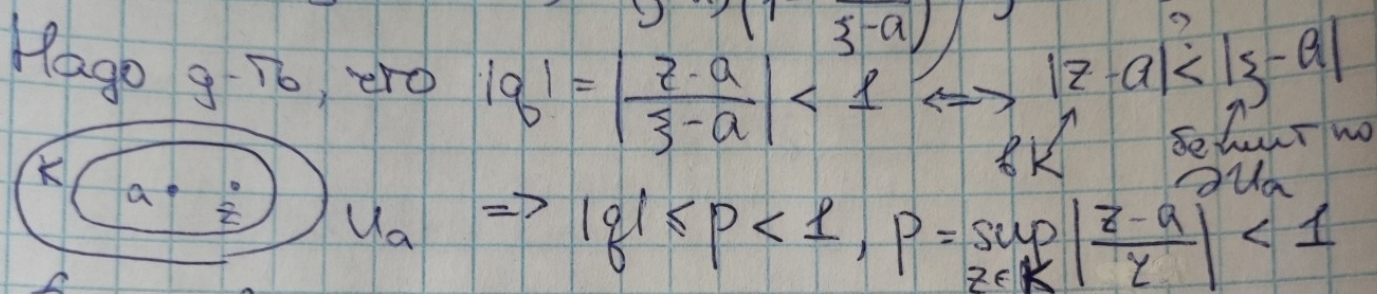 ξ-a
Надо д-ть, что |q| = |z-a / ξ-a| < 1 <=> |z-a| < |ξ-a|
?
в K
бежит по ∂Ua
K a z Ua => |q| ≤ p < 1, p = sup z∈K |z-a / r| < 1